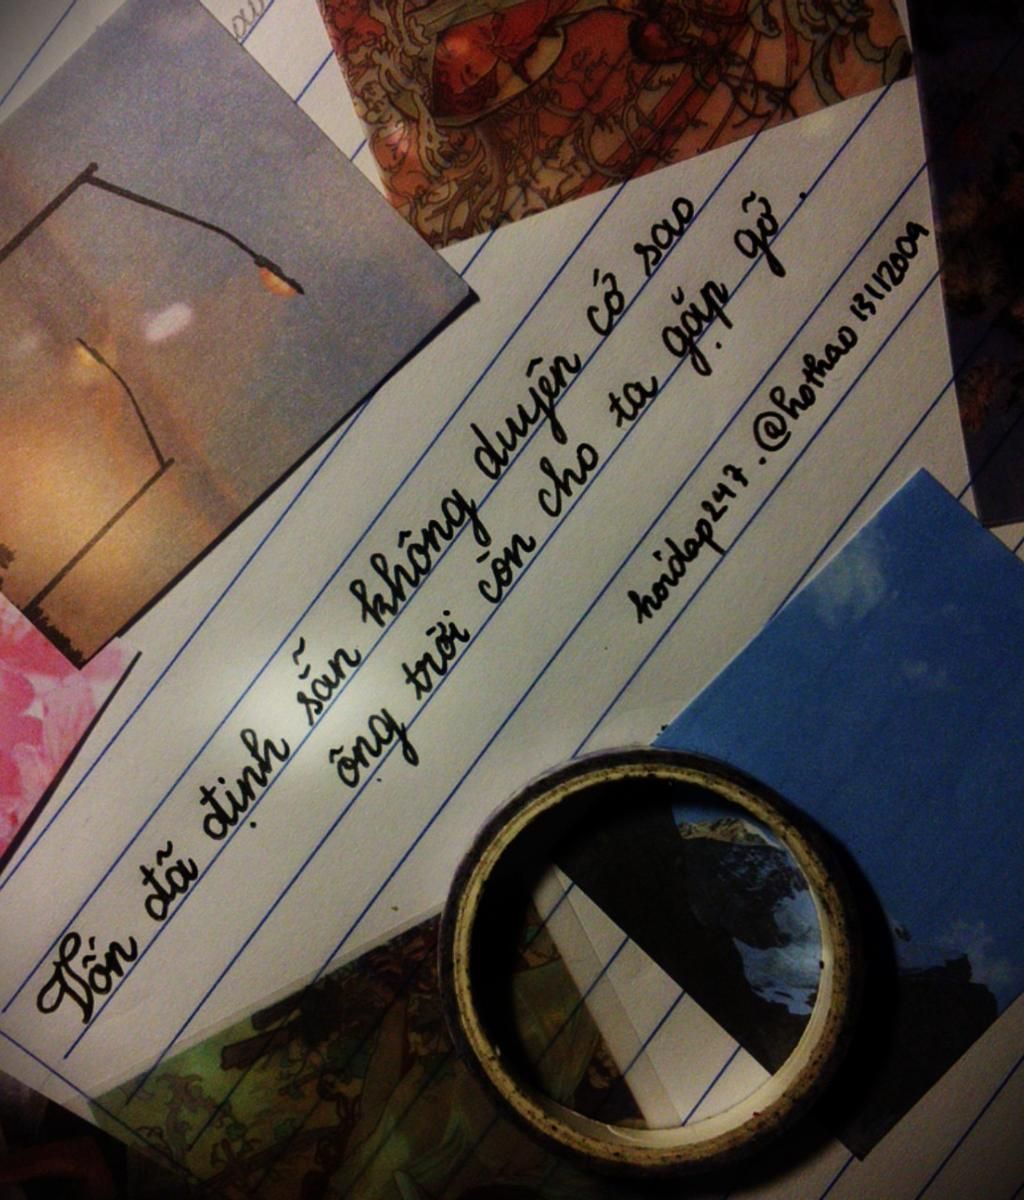 Vốn đã định sẵn không duyên cớ sao
ông trời còn cho ta gặp gỡ.
hoidap247.@hothao13112009